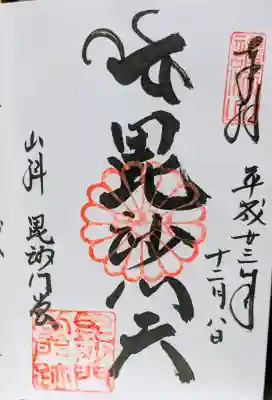 奉拝
平成廿三年
十二月八日
毘沙門天
山科 毘沙門堂